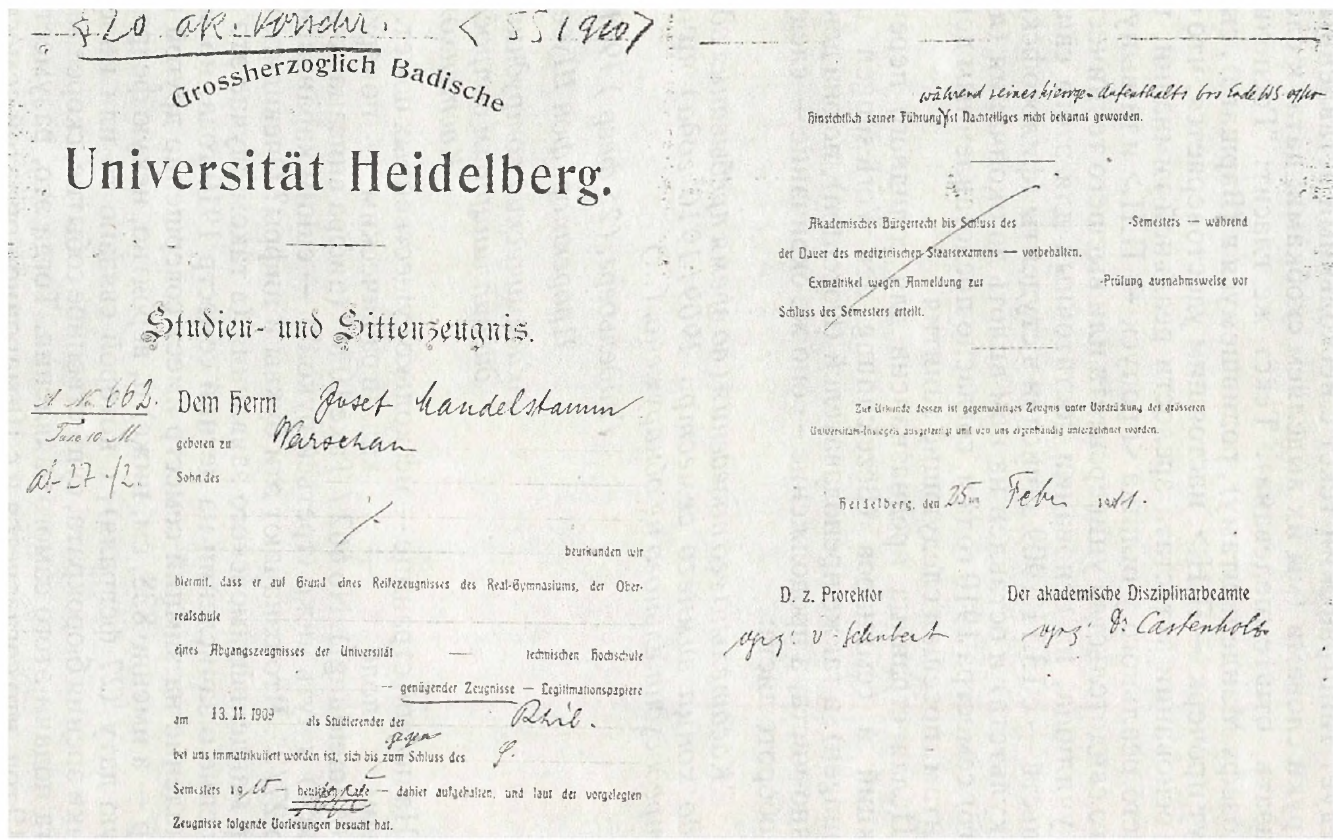 § 20 ak. Vorschr. < SS 1910>
Grossherzoglich Badische
Universität Heidelberg.
Studien- und Sittenzeugnis.
A No 662.
Taxe 10 M
27./2.
Dem Herrn Josef Mandelstamm
geboren zu Warschau
Sohn des
beurkunden wir
hiermit, dass er auf Grund eines Reifezeugnisses des Real-Gymnasiums, der Ober-
realschule
eines Abgangszeugnisses der Universität — technischen Hochschule
— genügender Zeugnisse — Legitimationspapiere
am 13. 11. 1909 als Studierender der Phil.
gegen
bei uns immatrikuliert worden ist, sich bis zum Schluss des S.
Semesters 19 10 — — dahier aufgehalten, und laut der vorgelegten
Zeugnisse folgende Vorlesungen besucht hat.
während seines hiesigen Aufenthalts bis Ende WS 09/10
Hinsichtlich seiner Führung ist Nachteiliges nicht bekannt geworden.
Akademisches Bürgerrecht bis Schluss des -Semesters — während
der Dauer des medizinischen Staatsexamens — vorbehalten.
Exmatrikel wegen Anmeldung zur -Prüfung ausnahmsweise vor
Schluss des Semesters erteilt.
Zur Urkunde dessen ist gegenwärtiges Zeugnis unter Vordrückung des grösseren
Universitäts-Insiegels ausgefertigt und von uns eigenhändig unterzeichnet worden.
Heidelberg, den 25ten Febr 1911.
D. z. Prorektor
v. Schubert
Der akademische Disziplinarbeamte
Dr. Castenholz